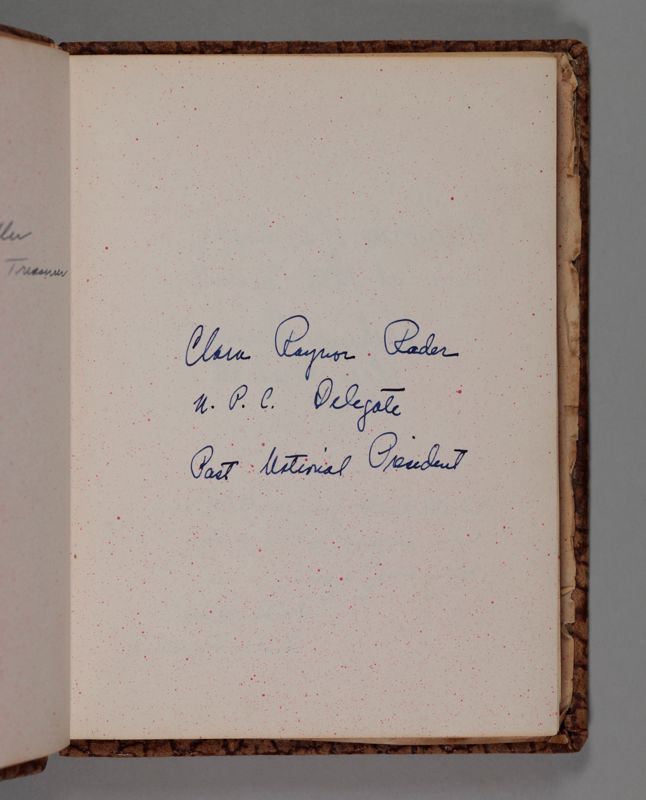 Treasurer
Clara Raynor Rader
N. P. C. Delegate
Past National President